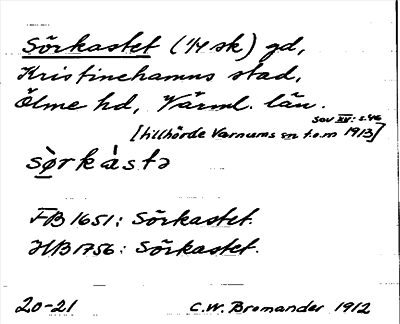 Sörkastet (1/4 sk) gd,
Kristinehamns stad,
Ölme hd, Värml. län.
sov XV: s.46
[tillhörde Varnums sn t.o.m 1913]
sø̀rkàstə
JB 1651: Sörkastet.
HB 1756: Sörkastet.
20-21 C.W. Bromander 1912